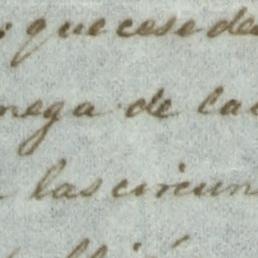 : que cese de
nega de la
las circun